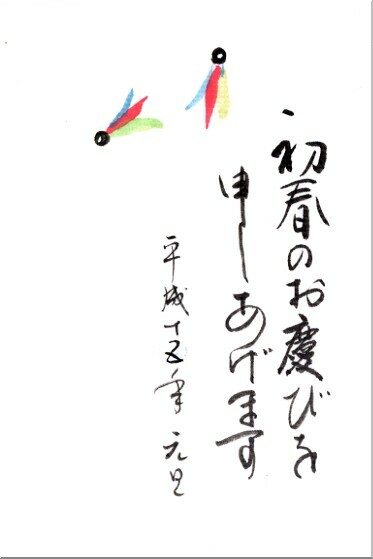 初春のお慶びを
申しあげます
平成十五年 元旦